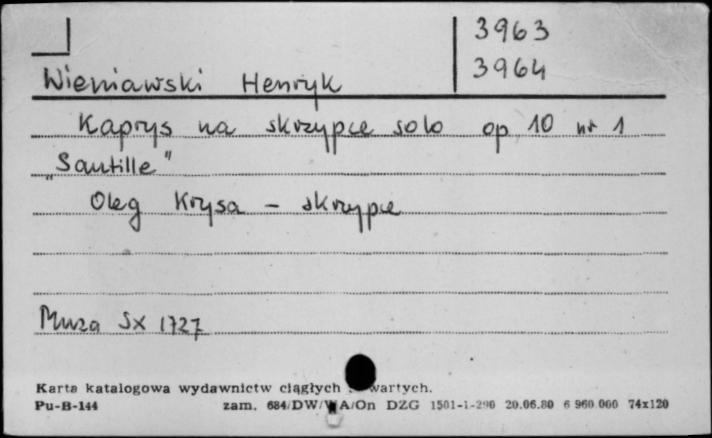 3963
3964
Wieniawski Henryk
Kaprys na skrzypce solo op 10 nr 1
„Sautille”
Oleg Krysa – skrzypce
Muza Sx 1727
Karta katalogowa wydawnictw ciągłych wartych.
Pu-B-144 zam. 684/DW/WA/On DZG 1501-1-290 20.06.80 6 960 000 74x120